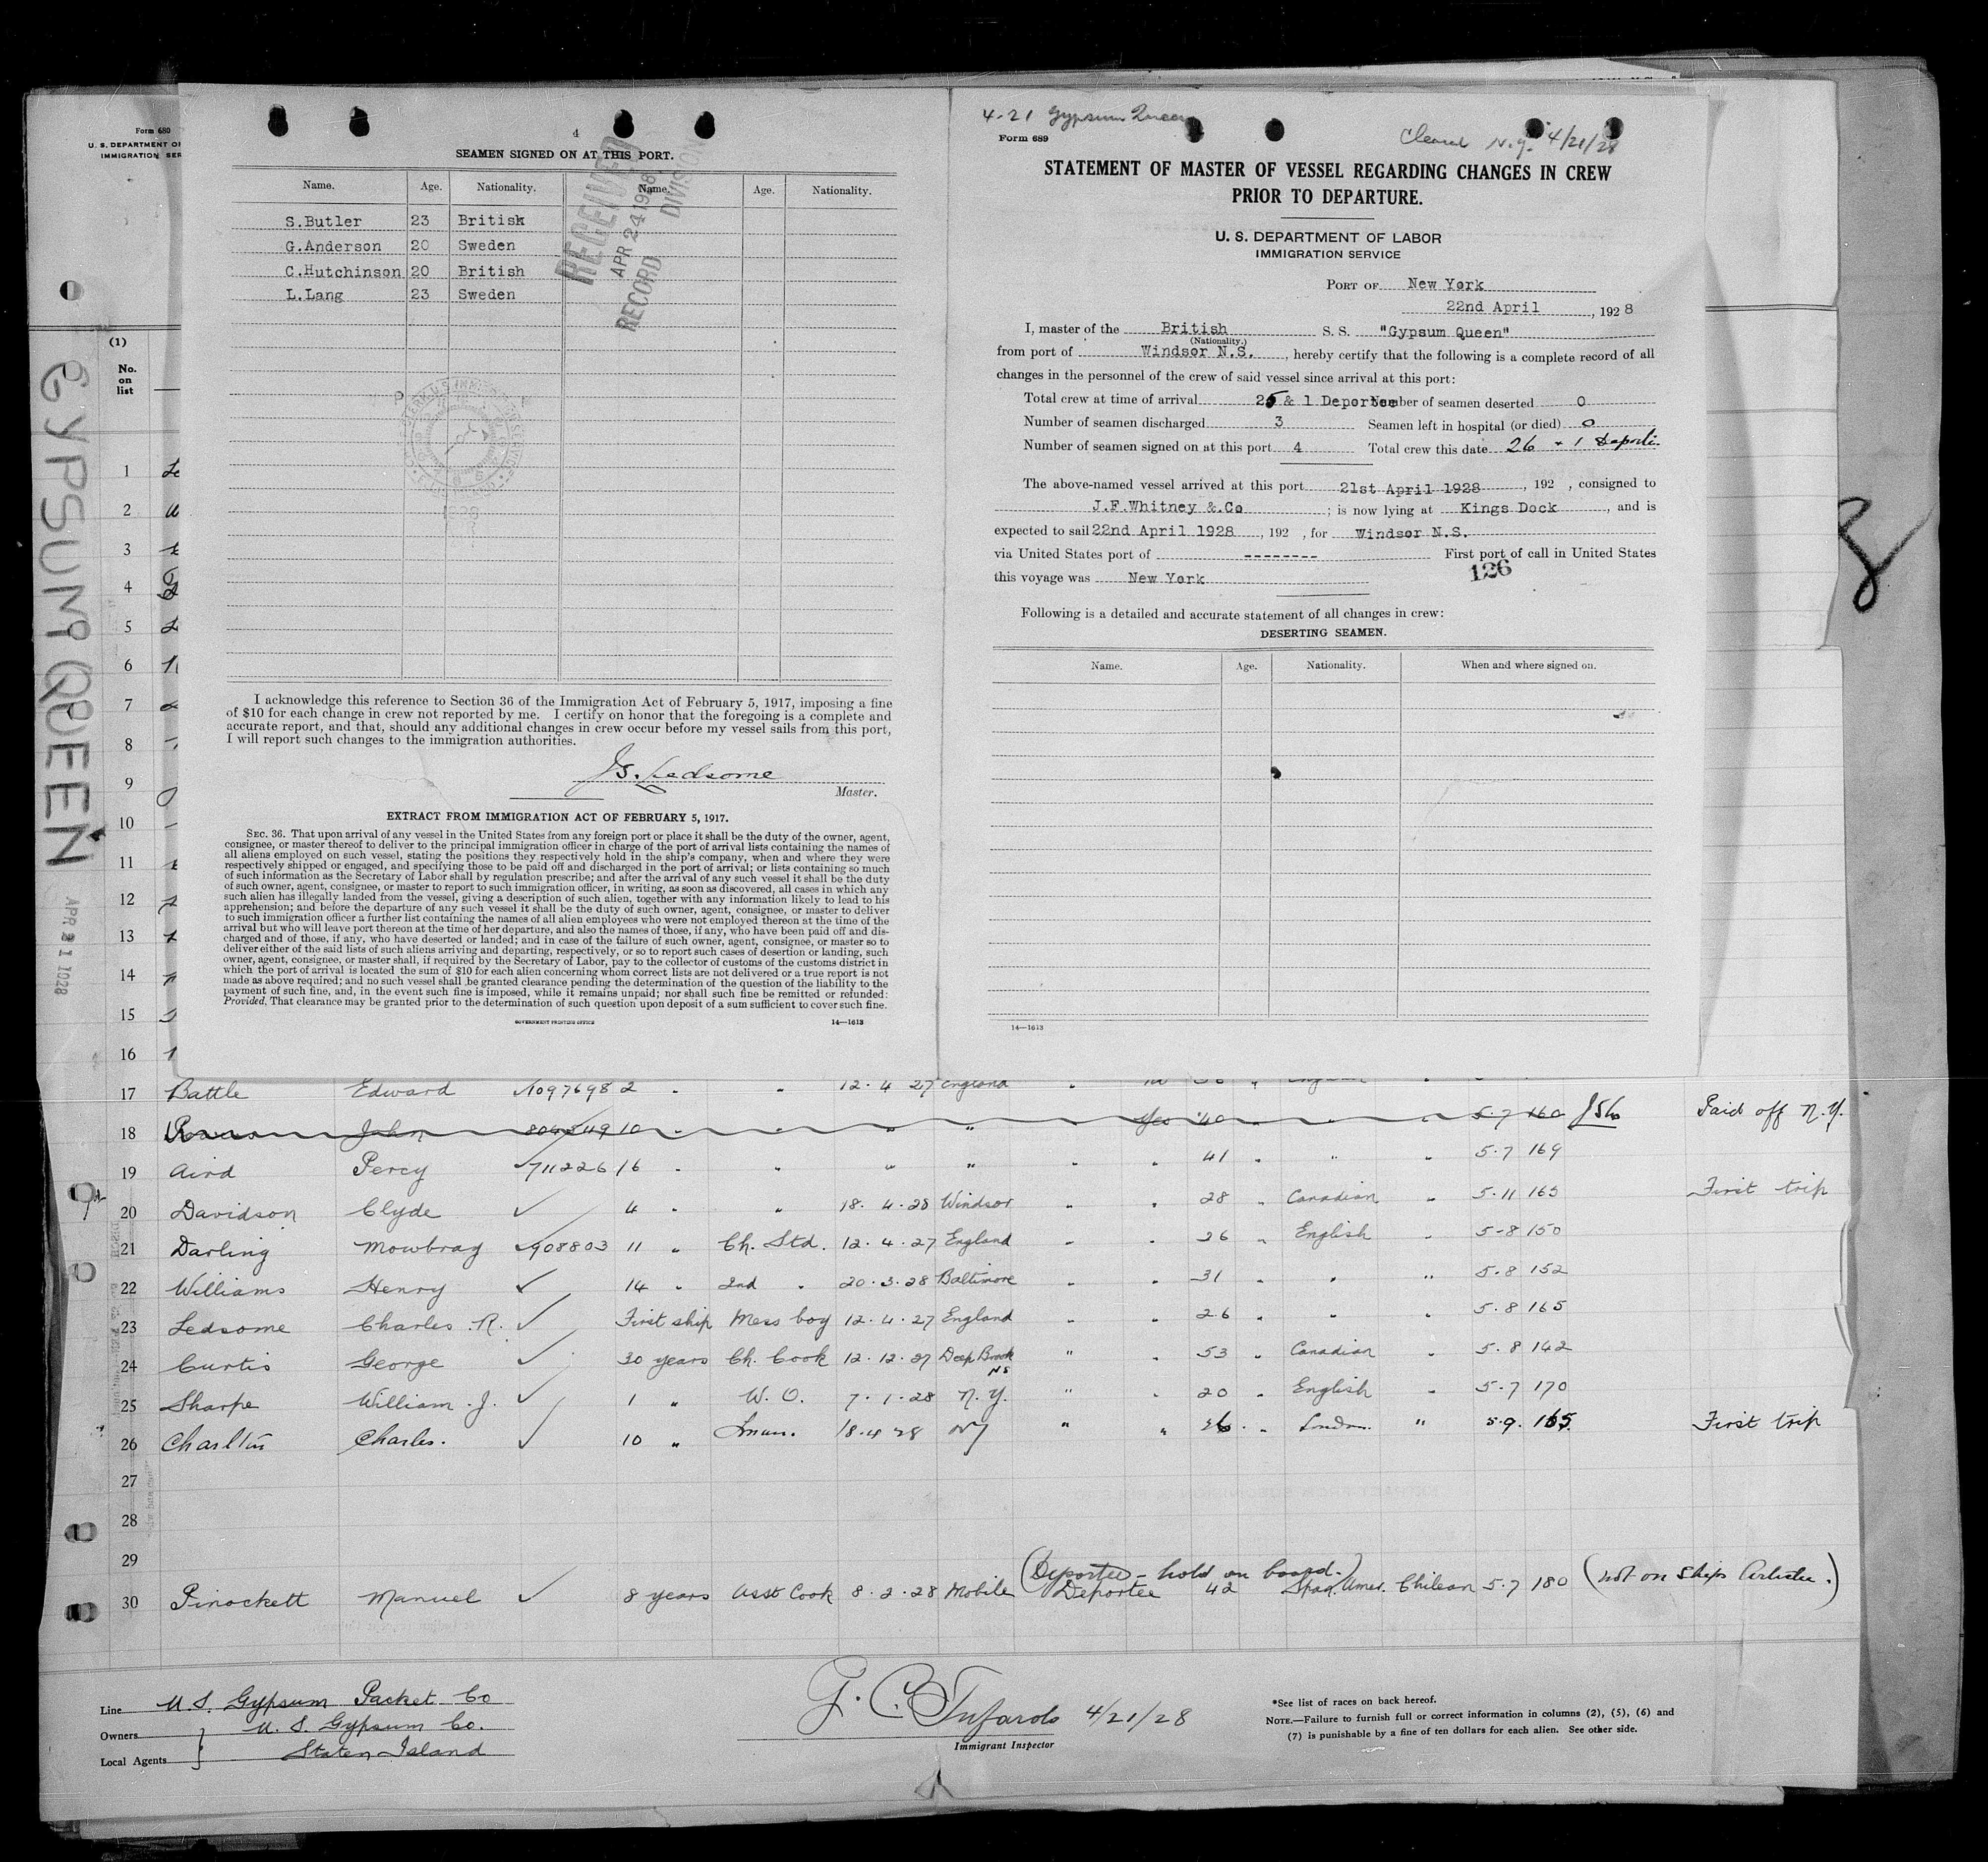 Form 680
U. S. DEPARTMENT OF
IMMIGRATION SER
(1)
No.
on
list
GYPSUM QUEEN
APR 21 1928
4
SEAMEN SIGNED ON AT THIS PORT.
Name. Age. Nationality. Name. Age. Nationality.
S.Butler 23 British
G.Anderson 20 Sweden
C.Hutchinson 20 British
L.Lang 23 Sweden
RECEIVED
APR 24 1928
RECORD DIVISION
I acknowledge this reference to Section 36 of the Immigration Act of February 5, 1917, imposing a fine
of $10 for each change in crew not reported by me. I certify on honor that the foregoing is a complete and
accurate report, and that, should any additional changes in crew occur before my vessel sails from this port,
I will report such changes to the immigration authorities.
J.G. Ledsome
Master.
EXTRACT FROM IMMIGRATION ACT OF FEBRUARY 5, 1917.
SEC. 36. That upon arrival of any vessel in the United States from any foreign port or place it shall be the duty of the owner, agent,
consignee, or master thereof to deliver to the principal immigration officer in charge of the port of arrival lists containing the names of
all aliens employed on such vessel, stating the positions they respectively hold in the ship's company, when and where they were
respectively shipped or engaged, and specifying those to be paid off and discharged in the port of arrival; or lists containing so much
of such information as the Secretary of Labor shall by regulation prescribe; and after the arrival of any such vessel it shall be the duty
of such owner, agent, consignee, or master to report to such immigration officer, in writing, as soon as discovered, all cases in which any
such alien has illegally landed from the vessel, giving a description of such alien, together with any information likely to lead to his
apprehension; and before the departure of any such vessel it shall be the duty of such owner, agent, consignee, or master to deliver
to such immigration officer a further list containing the names of all alien employees who were not employed thereon at the time of the
arrival but who will leave port thereon at the time of her departure, and also the names of those, if any, who have been paid off and dis-
charged and of those, if any, who have deserted or landed; and in case of the failure of such owner, agent, consignee, or master so to
deliver either of the said lists of such aliens arriving and departing, respectively, or so to report such cases of desertion or landing, such
owner, agent, consignee, or master shall, if required by the Secretary of Labor, pay to the collector of customs of the customs district in
which the port of arrival is located the sum of $10 for each alien concerning whom correct lists are not delivered or a true report is not
made as above required; and no such vessel shall be granted clearance pending the determination of the question of the liability to the
payment of such fine, and, in the event such fine is imposed, while it remains unpaid; nor shall such fine be remitted or refunded:
Provided, That clearance may be granted prior to the determination of such question upon deposit of a sum sufficient to cover such fine.
GOVERNMENT PRINTING OFFICE 14—1613
4-21 Gypsum Queen
Form 689
Cleared N.Y. 4/21/28
STATEMENT OF MASTER OF VESSEL REGARDING CHANGES IN CREW
PRIOR TO DEPARTURE.
U. S. DEPARTMENT OF LABOR
IMMIGRATION SERVICE
PORT OF New York
22nd April, 1928
I, master of the British S. S. "Gypsum Queen"
(Nationality.)
from port of Windsor N.S., hereby certify that the following is a complete record of all
changes in the personnel of the crew of said vessel since arrival at this port:
Total crew at time of arrival 25 & 1 Deportee Number of seamen deserted 0
Number of seamen discharged 3 Seamen left in hospital (or died) 0
Number of seamen signed on at this port 4 Total crew this date 26 + 1 Deporte
The above-named vessel arrived at this port 21st April 1928, 192 , consigned to
J.F.Whitney &.Co; is now lying at Kings Dock, and is
expected to sail 22nd April 1928, 192 , for Windsor N.S.
via United States port of -------- First port of call in United States
this voyage was New York
126
Following is a detailed and accurate statement of all changes in crew:
DESERTING SEAMEN.
Name. Age. Nationality. When and where signed on.
14—1613
1
2
3
4
5
6
7
8
9
10
11
12
13
14
15
16
17 Battle Edward 1097698 2 " " 12. 4 27 England
18 John 806849 10 " " " " Yes 40 " " 5.7 160 Paid off N.Y.
19 Aird Percy 711226 16 " " " " " " 41 " " " 5.7 169
20 Davidson Clyde 4 " " 18. 4. 28 Windsor " " 28 " Canadian " 5.11 165 First trip
21 Darling Mowbray 908803 11 " Ch. Std. 12. 4. 27 England " " 26 " English " 5-8 150
22 Williams Henry 14 " 2nd " 20. 3. 28 Baltimore " " 31 " " " 5.8 152
23 Ledsome Charles .R. First ship Mess boy 12. 4. 27 England " " 26 " " " 5. 8 165
24 Curtis George 30 years Ch. Cook 12. 12. 27 Deep Brook NS " " 53 " Canadian " 5. 8 142
25 Sharpe William .J. 1 " W. O. 7. 1. 28 N. Y. " " 20 " English " 5.7 170
26 Charlton Charles. 10 " 18.4 28 NY " " 26 " London " 5.9. 165. First trip
27
28
29
(Deportee - hold on board.)
30 Pinockett Manuel 8 years Asst Cook 8. 2. 28 Mobile Deportee 42 Span. Amer. Chilean 5.7 180 (not on Ships Articles.)
Line U. S. Gypsum Packet Co
Owners U. S. Gypsum Co.
Local Agents Staten Island
4/21/28
Immigrant Inspector
*See list of races on back hereof.
NOTE.—Failure to furnish full or correct information in columns (2), (5), (6) and
(7) is punishable by a fine of ten dollars for each alien. See other side.